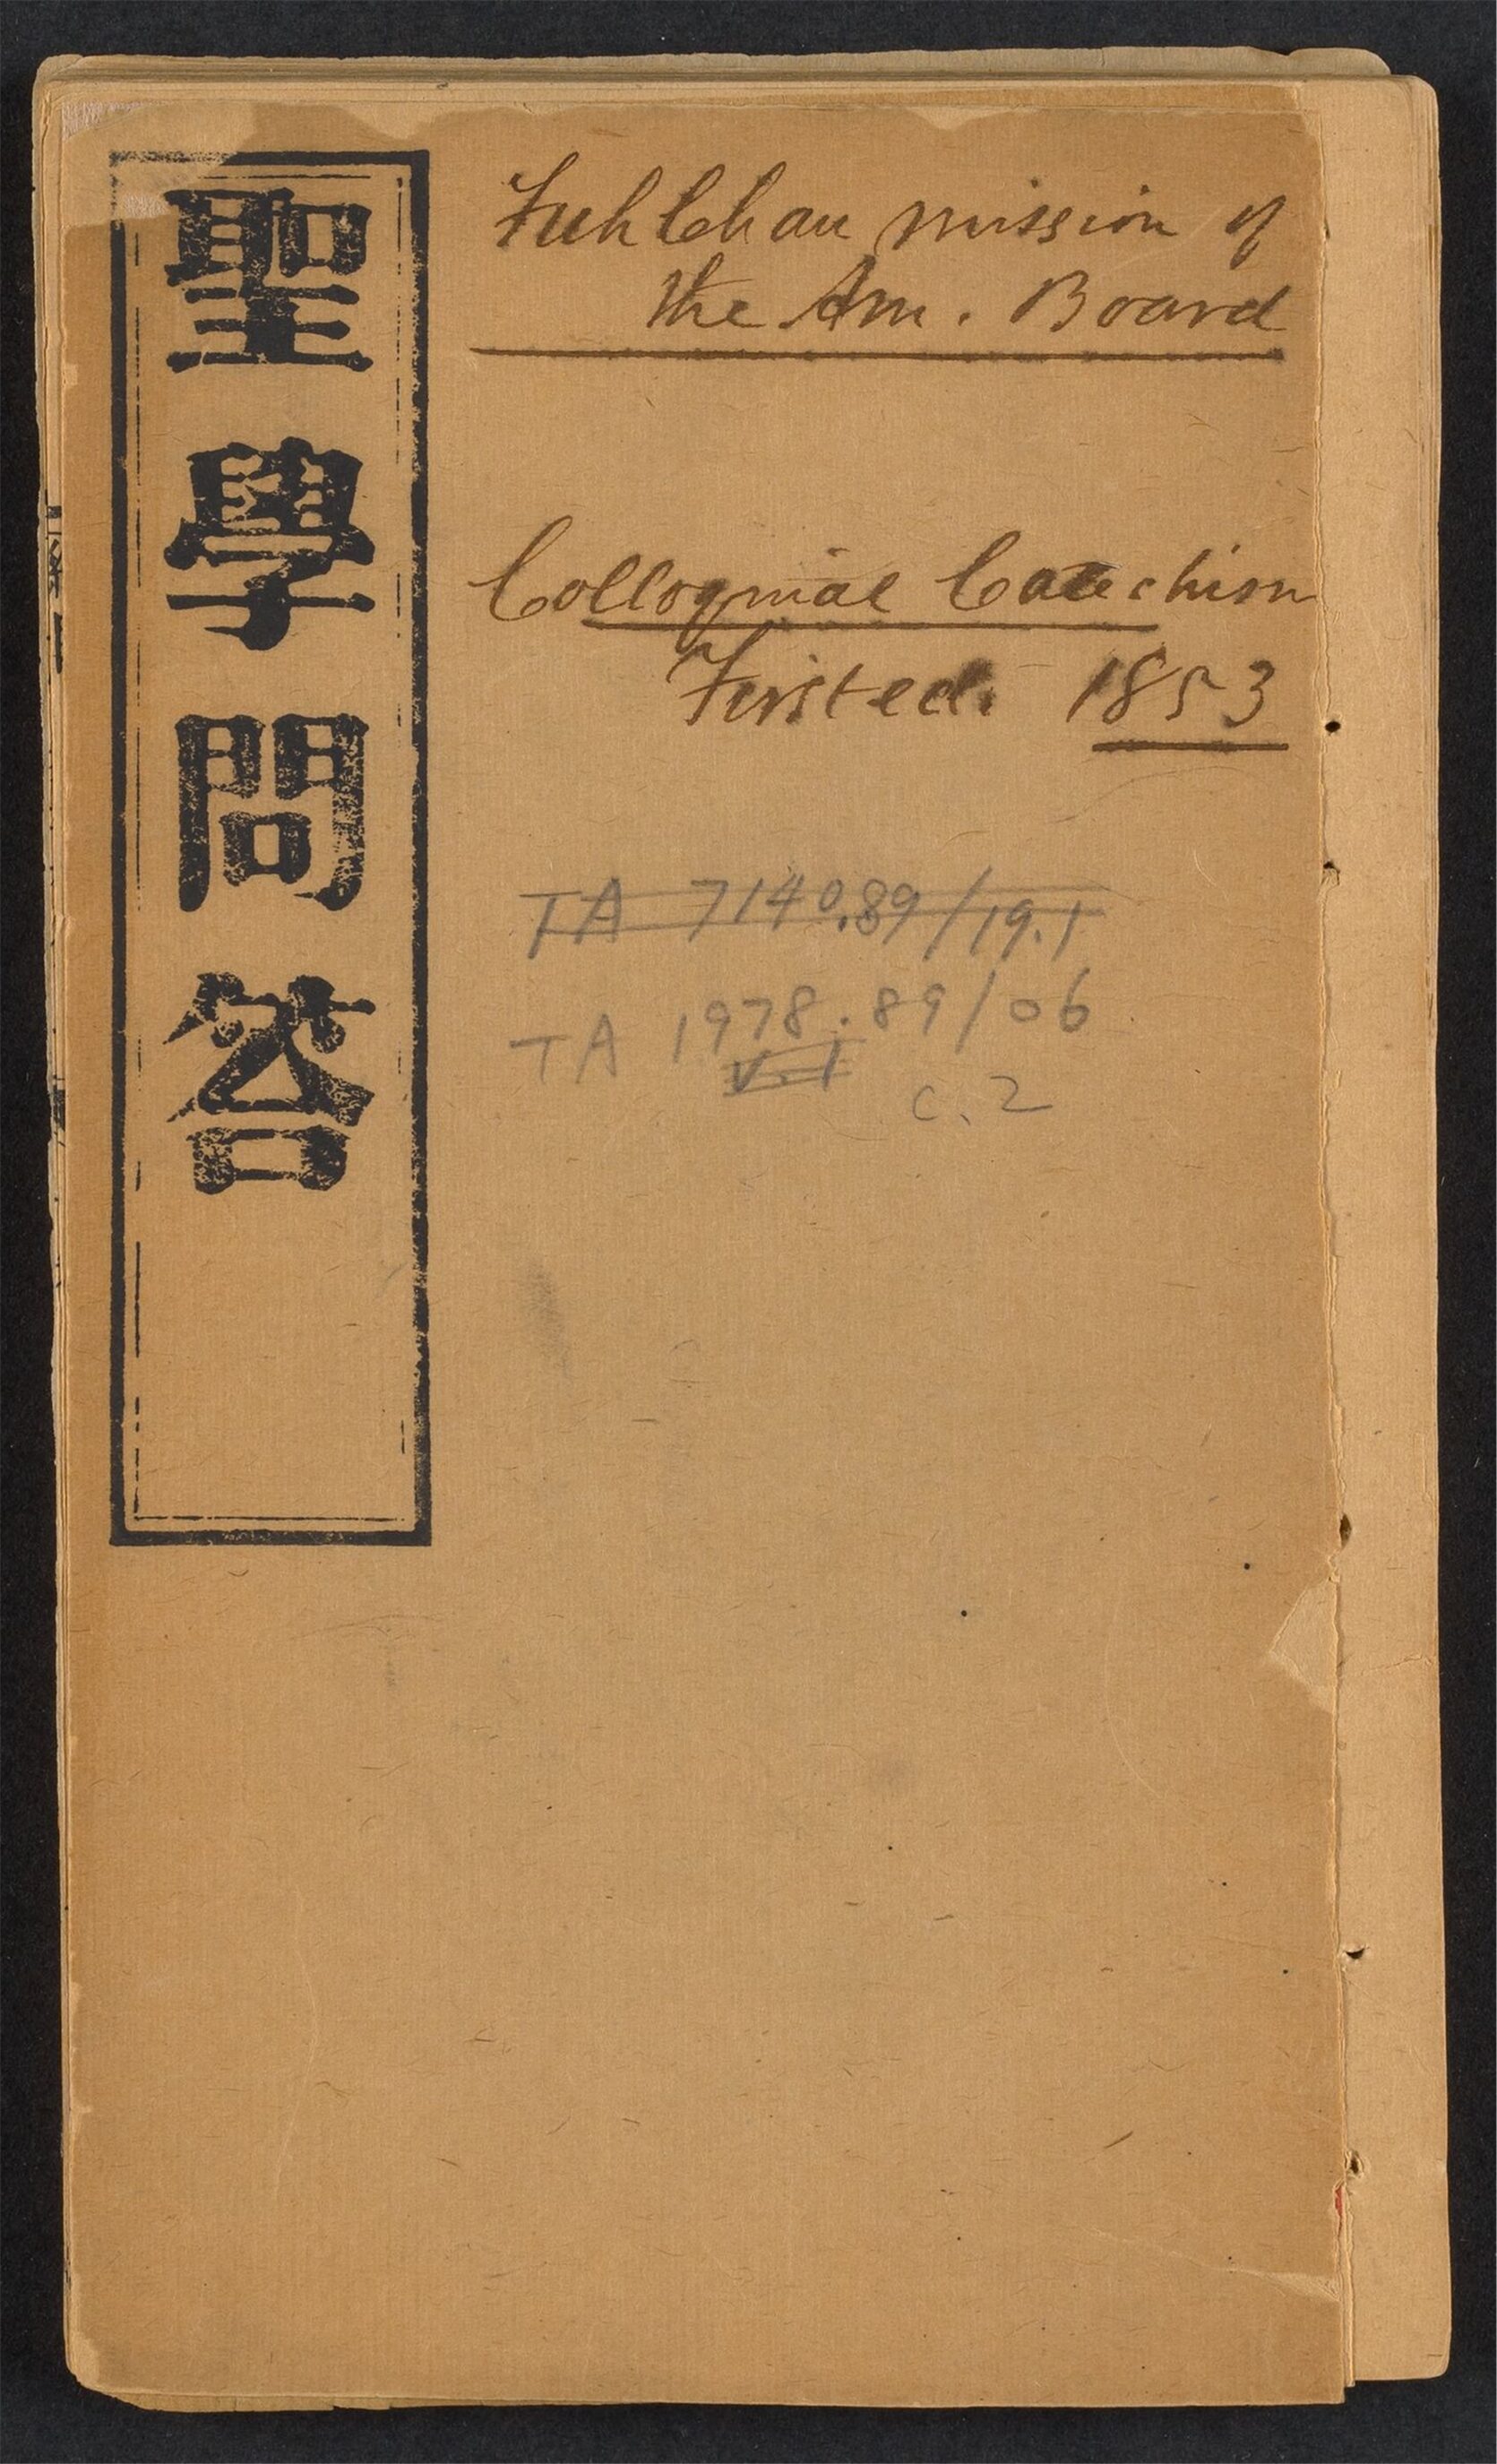 聖學問答
Fuh Chau mission of
the Am. Board
Colloquial Catechism
First ed. 1853
TA 7140.89/19.1
TA 1978.89/06
v.1
c.2